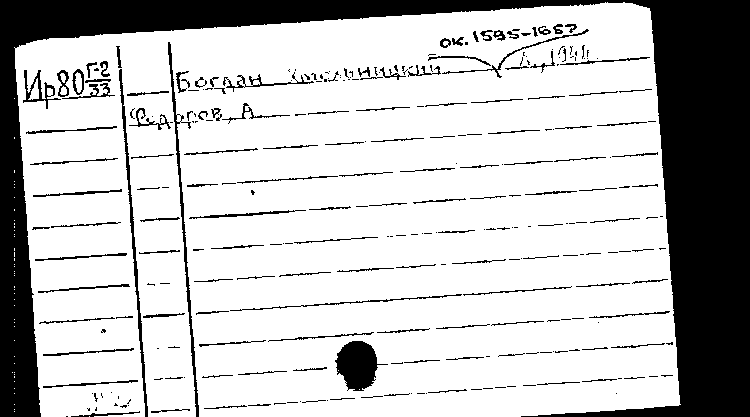 ок. 1595-1657
Ир80 Г-2/33 Богдан Хмельницкий. Л., 1944
Федоров, А.